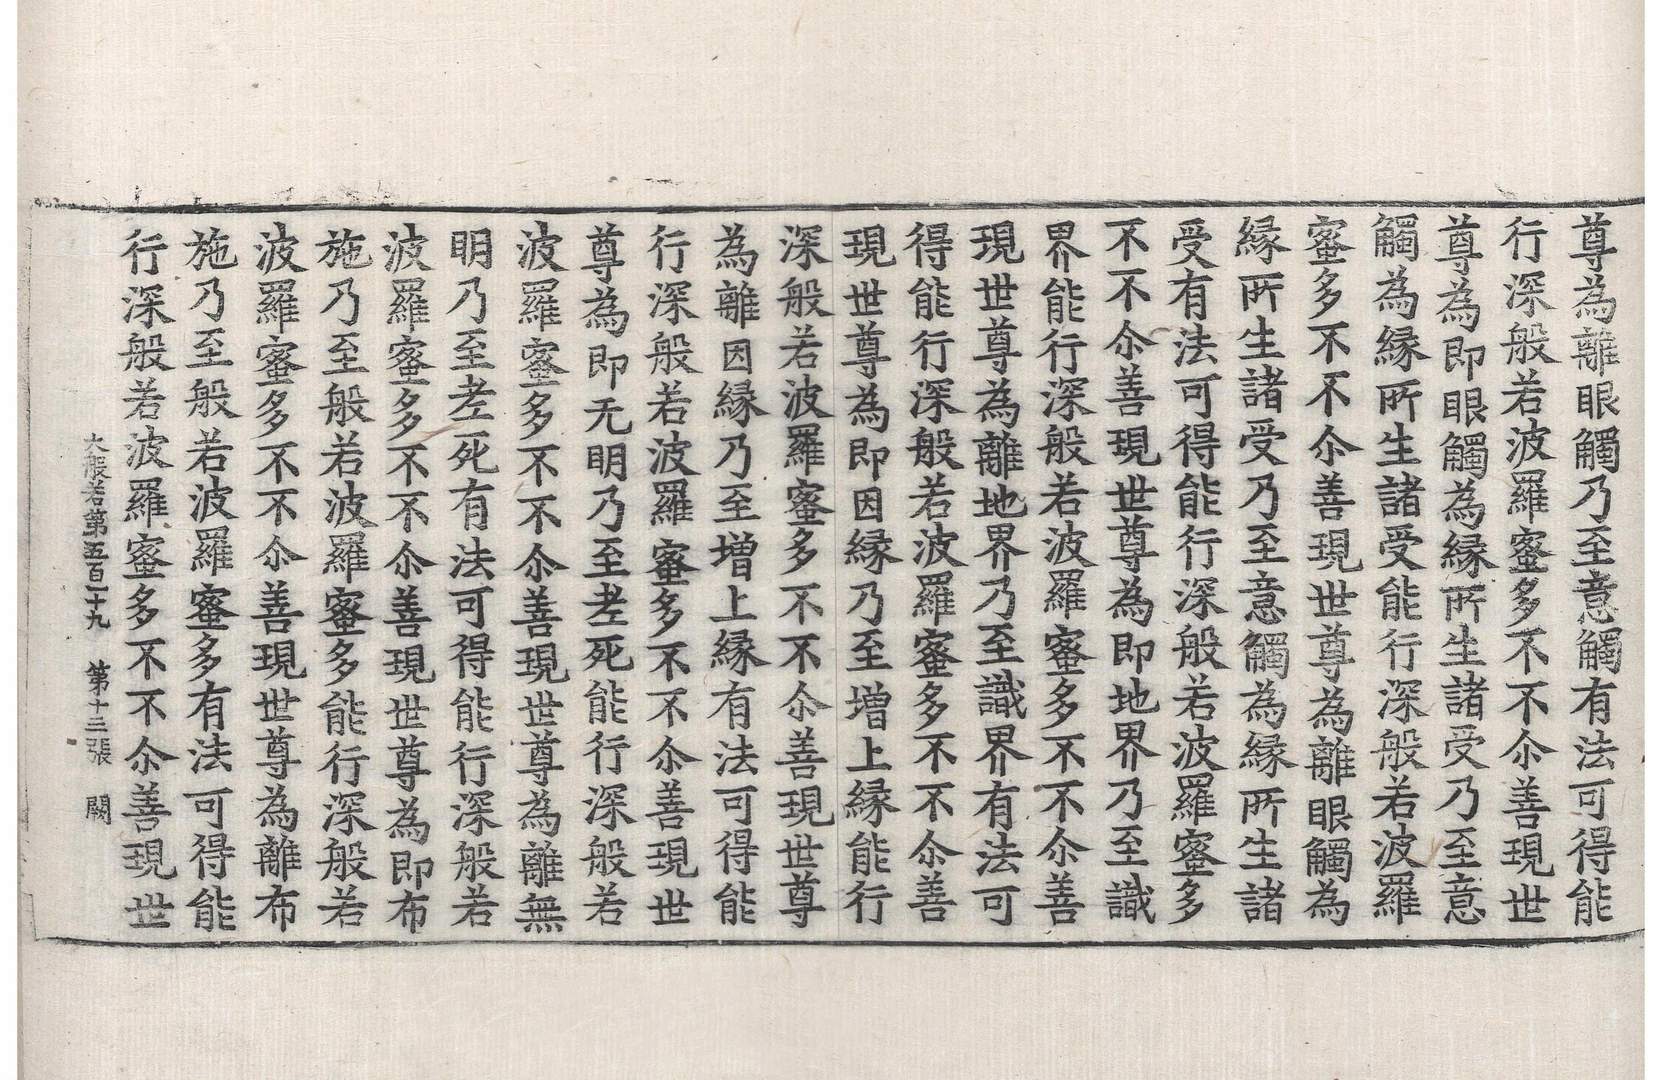 尊為離眼觸乃至意觸有法可得能
行深般若波羅蜜多不不尒善現世
尊為即眼觸為縁所生諸受乃至意
觸為縁所生諸受能行深般若波羅
蜜多不不尒善現世尊為離眼觸為
縁所生諸受乃至意觸為縁所生諸
受有法可得能行深般若波羅蜜多
不不尒善現世尊為即地界乃至識
界能行深般若波羅蜜多不不尒善
現世尊為離地界乃至識界有法可
得能行深般若波羅蜜多不不尒善
現世尊為即因縁乃至增上縁能行
深般若波羅蜜多不不尒善現世尊
為離因縁乃至增上縁有法可得能
行深般若波羅蜜多不不尒善現世
尊為即无明乃至老死能行深般若
波羅蜜多不不尒善現世尊為離無
明乃至老死有法可得能行深般若
波羅蜜多不不尒善現世尊為即布
施乃至般若波羅蜜多能行深般若
波羅蜜多不不尒善現世尊為離布
施乃至般若波羅蜜多有法可得能
行深般若波羅蜜多不不尒善現世
大般若第五百二十九 第十三張 闕